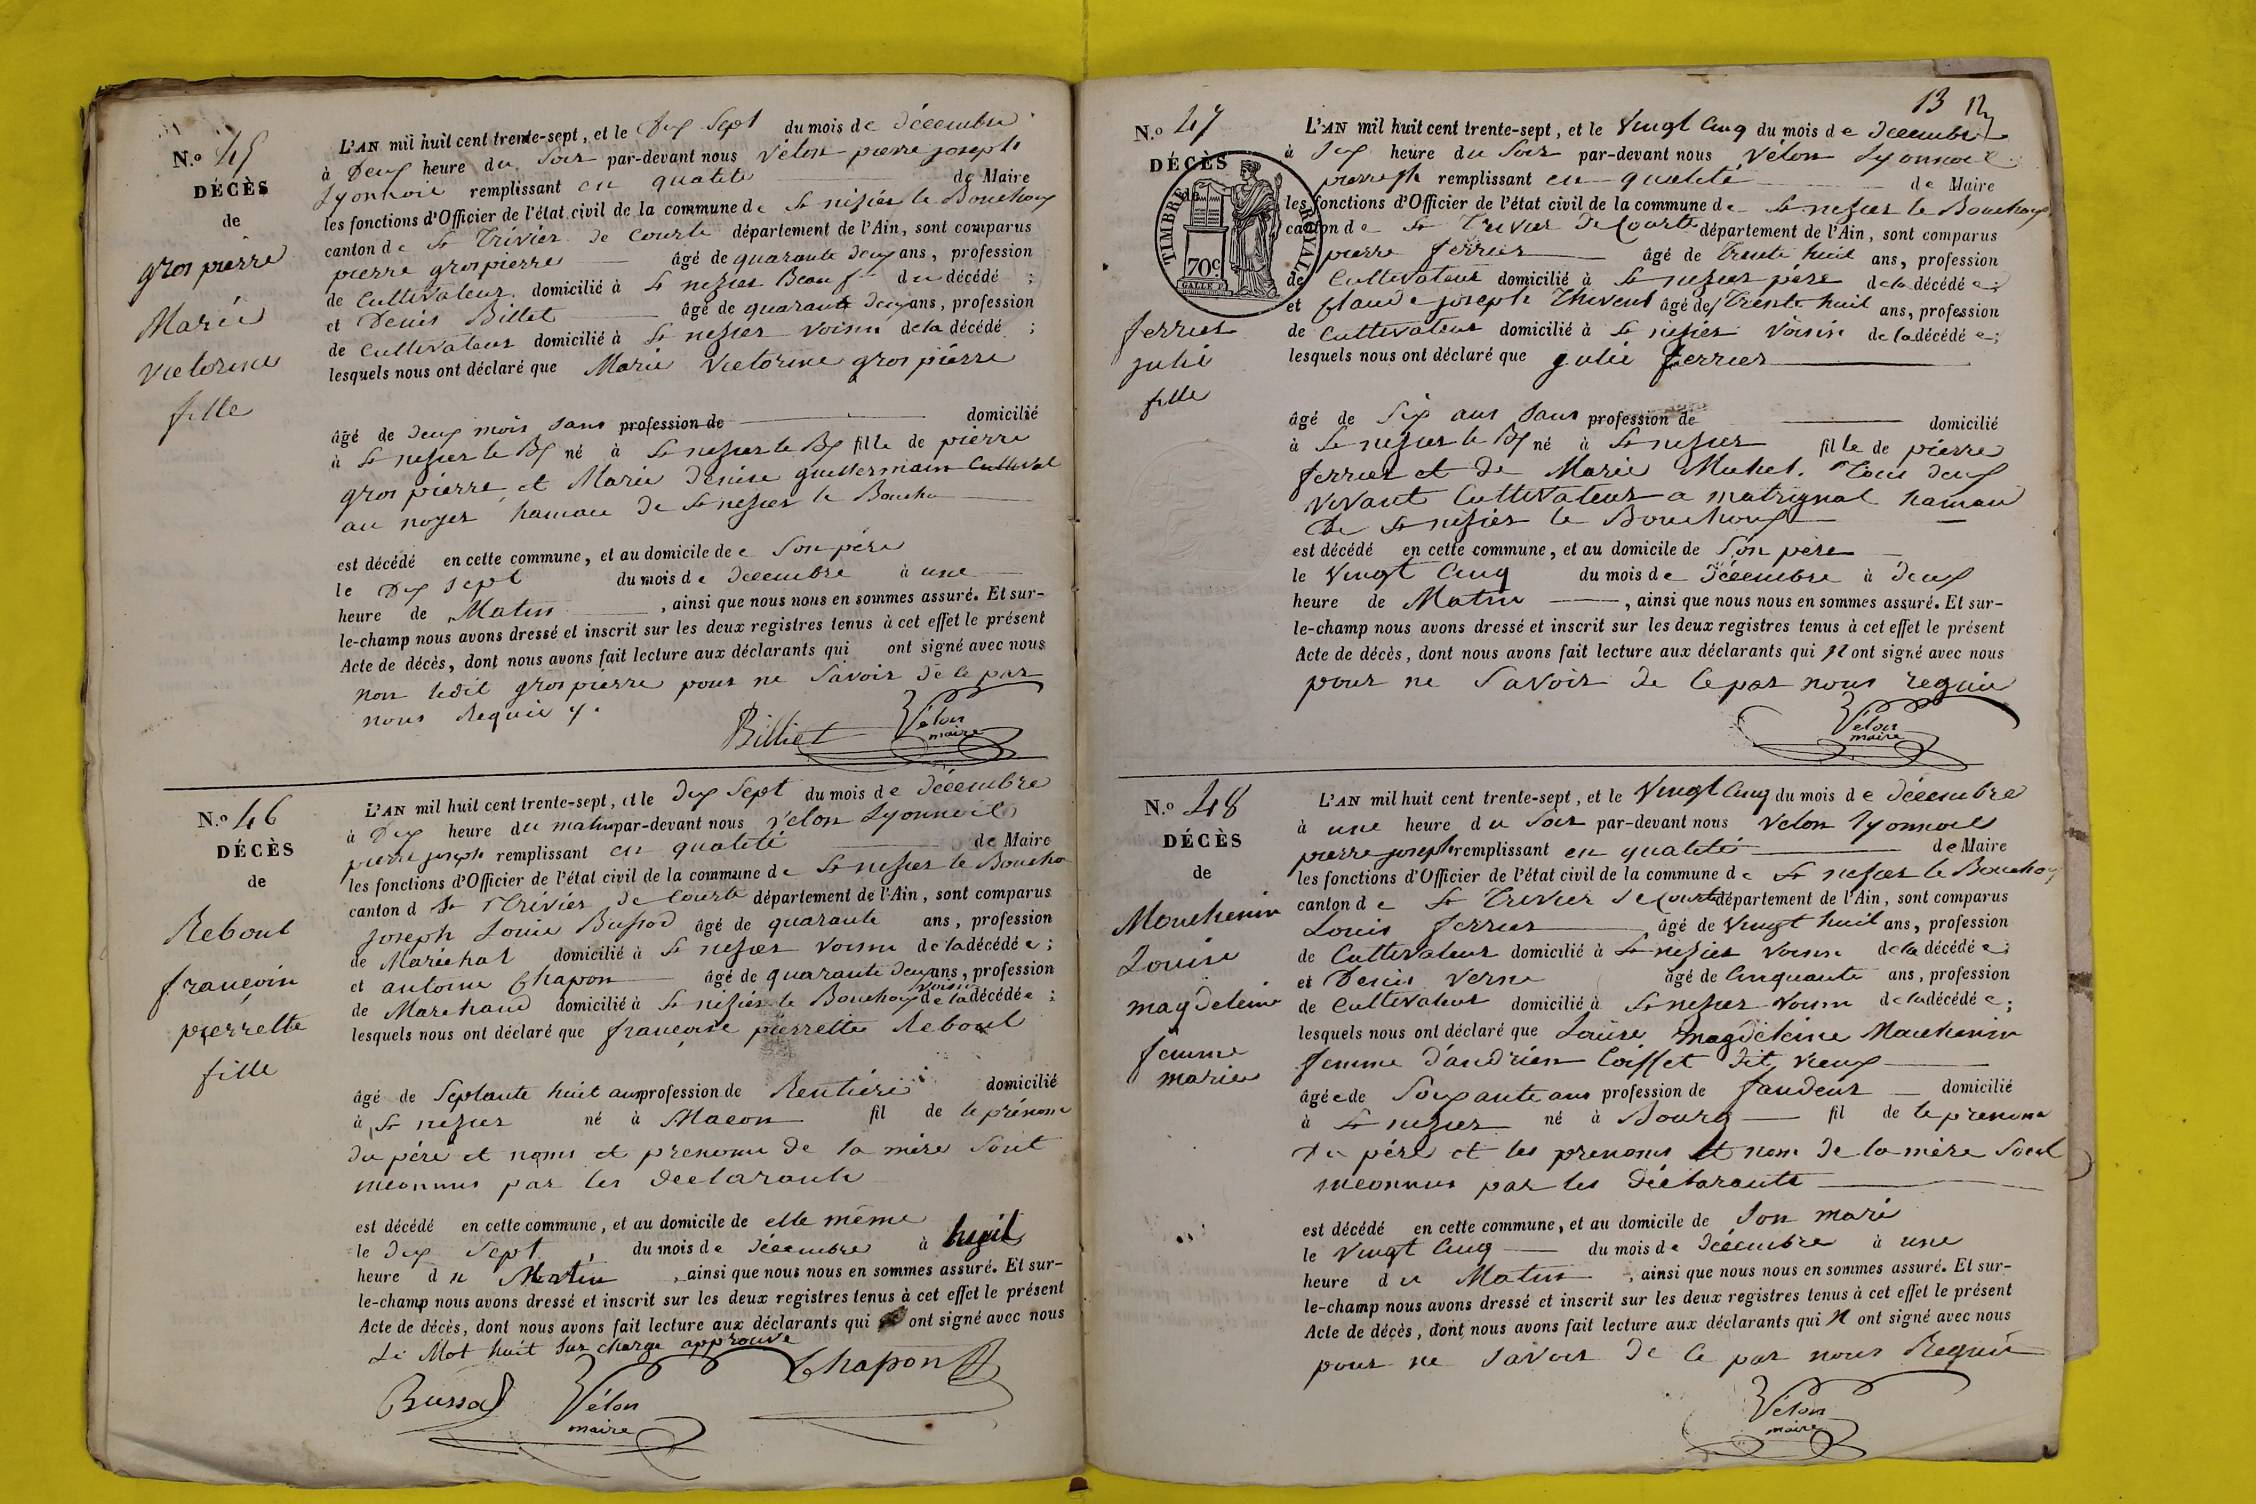 N.º 45
DÉCÈS
de
gros pierre
Marie
victorine
fille
L'AN mil huit cent trente-sept, et le Dix Sept du mois de décembre
à Deux heure du Soir par-devant nous Vélon pierre joseph
Lyonnois remplissant en qualité de Maire
les fonctions d'Officier de l'état civil de la commune de St nizier le Bouchoux
canton de St Trivier de Courte département de l'Ain, sont comparus
pierre grospierre âgé de quarante deux ans, profession
de Cultivateur domicilié à St nizier Beauf du décédé ;
et Denis Billet âgé de quarante deux ans, profession
de Cultivateur domicilié à St nizier voisin de la décédé ;
lesquels nous ont déclaré que Marie Victorine gros pierre
âgé de deux mois sans profession de domicilié
à St nizier le Bx né à St nizier le Bx fille de pierre
gros pierre et Marie denise guillermain Cultivat
au noyer hamau de St nizier le Boucho
est décédé en cette commune, et au domicile de Son père
le Dix sept du mois de décembre à une
heure de Matin , ainsi que nous nous en sommes assuré. Et sur-
le-champ nous avons dressé et inscrit sur les deux registres tenus à cet effet le présent
Acte de décès, dont nous avons fait lecture aux déclarants qui ont signé avec nous
non ledit grospierre pour ne Savoir de ce par
nous Requis
Billiet Vélon
maire
N.º 46
DÉCÈS
de
Reboul
françoin
pierrette
fille
L'AN mil huit cent trente-sept, et le dix Sept du mois de décembre
à Dix heure du matin par-devant nous vélon Lyonnois
pierre joseph remplissant en qualité de Maire
les fonctions d'Officier de l'état civil de la commune de St nizier le Boucho
canton d St Trivier de Courte département de l'Ain, sont comparus
joseph Louis Bussod âgé de quarante ans, profession
de Maréchal domicilié à St nizier voisin de la décédée ;
et antoine Chapon âgé de quarante deux ans, profession
de Marchand domicilié à St nizier le Bouchoux voisin de la décédée ;
lesquels nous ont déclaré que françoise pierrette Reboul
âgé de Septante huit ans profession de Rentière domicilié
à St nizier né à Macon fil de le prénom
du père et noms et prenoms de la mère sont
inconnus par les déclarants
est décédé en cette commune, et au domicile de elle même
le dix Sept du mois de décembre à huit
heure du Matin , ainsi que nous nous en sommes assuré. Et sur-
le-champ nous avons dressé et inscrit sur les deux registres tenus à cet effet le présent
Acte de décès, dont nous avons fait lecture aux déclarants qui ont signé avec nous
Le Mot huit sur charge approuvé
Bussod Vélon Chapon
maire
13
N.º 47
DÉCÈS
de
TIMBRE ROYAL
70c
ferrier
julie
fille
L'AN mil huit cent trente-sept, et le Vingt Cinq du mois de décembre
à Six heure du Soir par-devant nous Vélon Lyonnois
pierre jh remplissant en qualité de Maire
les fonctions d'Officier de l'état civil de la commune de St nizier le Bouchoux
canton de St Trivier de Courte département de l'Ain, sont comparus
pierre ferrier âgé de Trente huit ans, profession
de Cultivateur domicilié à St nizier père de la décédée ;
et Claude joseph Thivent âgé de Trente huit ans, profession
de Cultivateur domicilié à St nizier voisin de la décédée ;
lesquels nous ont déclaré que julie ferrier
âgé de Six ans Sans profession de domicilié
à St nizier le Bx né à St nizier fille de pierre
ferrier et de Marie Michel. Tous deux
vivant Cultivateur a matrignat hamau
De St nizier le Bouchoux
est décédé en cette commune, et au domicile de Son père
le vingt Cinq du mois de décembre à deux
heure de Matin , ainsi que nous nous en sommes assuré. Et sur-
le-champ nous avons dressé et inscrit sur les deux registres tenus à cet effet le présent
Acte de décès, dont nous avons fait lecture aux déclarants qui n ont signé avec nous
pour ne Savoir de ce par nous requis
Vélon
maire
N.º 48
DÉCÈS
de
Mouchenin
Louise
magdeleine
femme
marié
L'AN mil huit cent trente-sept, et le Vingt Cinq du mois de décembre
à une heure du Soir par-devant nous Velon lyonnois
pierre joseph remplissant en qualité de Maire
les fonctions d'Officier de l'état civil de la commune de St nizier le Bouchoux
canton de St Trivier de Courte département de l'Ain, sont comparus
Louis ferrier âgé de vingt huit ans, profession
de Cultivateur domicilié à St nizier voisin de la décédée ;
et Denis Verne âgé de Cinquante ans, profession
de Cultivateur domicilié à St nizier voisin de la décédée ;
lesquels nous ont déclaré que Louise magdeleine Mouchenin
femme d'andrien Coisset dit vieux
âgée de Soixante ans profession de domicilié
à St nizier né à Bourg fil de le prenom
du père et les prenoms et nom de la mère Sont
inconnus par les déclarants
est décédé en cette commune, et au domicile de Son mari
le vingt Cinq du mois de décembre à une
heure du Matin , ainsi que nous nous en sommes assuré. Et sur-
le-champ nous avons dressé et inscrit sur les deux registres tenus à cet effet le présent
Acte de décès, dont nous avons fait lecture aux déclarants qui n ont signé avec nous
pour ne savoir de ce par nous Requis
Vélon
maire